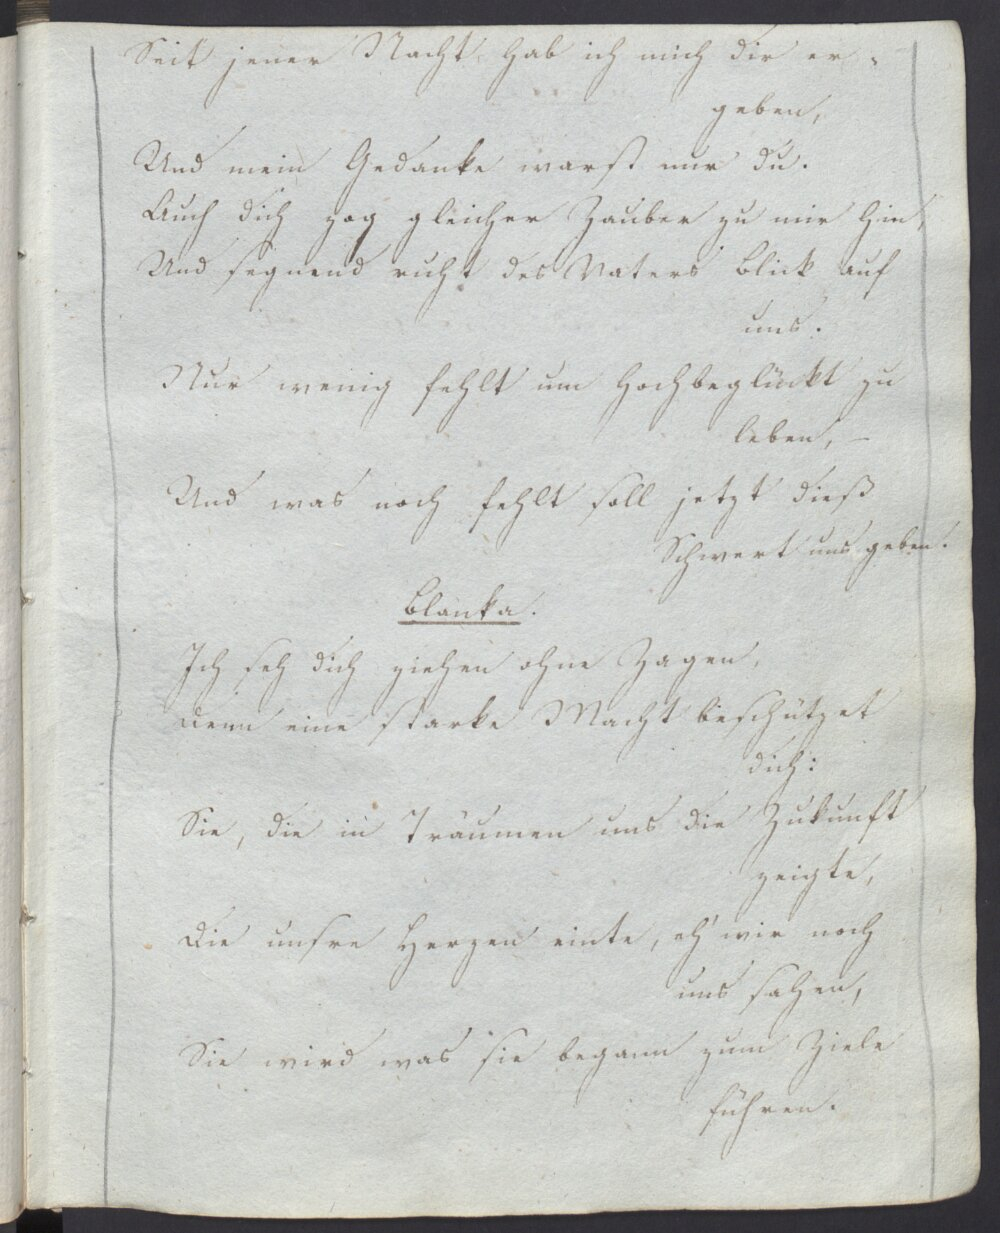 Seit jener Nacht hab ich mich dir er=
geben,
Und mein Gedanke warst nur du.
Auch dich zog gleicher Zauber zu mir hin,
Und segnend ruht des Vaters Blick auf
uns.
Nur wenig fehlt um hochbeglückt zu
leben, –
Und was noch fehlt soll jetzt dieß
Schwert uns geben.
Blanka.
Ich seh dich ziehen ohne Zagen,
Denn eine starke Macht beschützet
dich:
Sie, die in Träumen uns die Zukunft
zeigte,
Die unsre Herzen einte, eh' wir noch
uns sahen,
Sie wird was sie begann zum Ziele
führen.